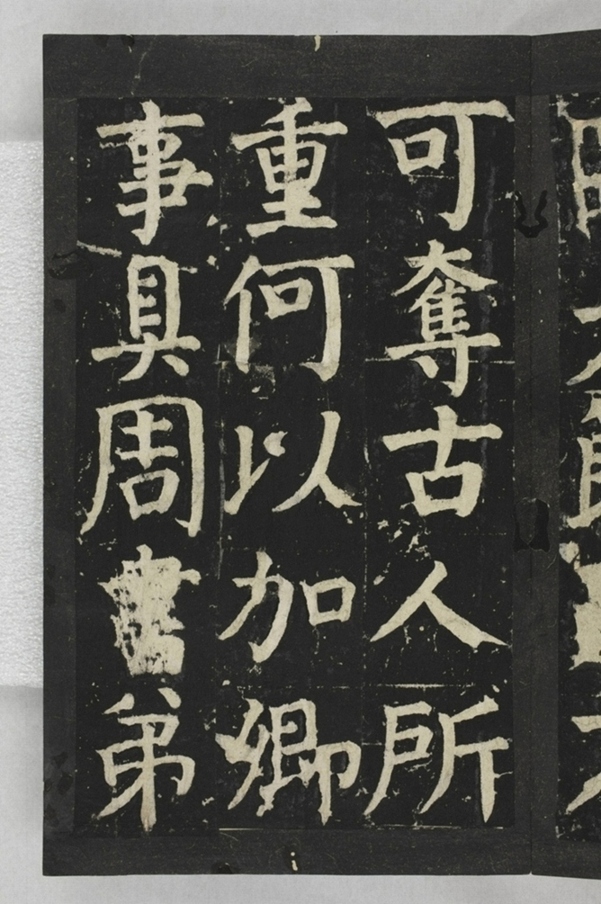 可奪古人所
重何以加卿
事具周書弟